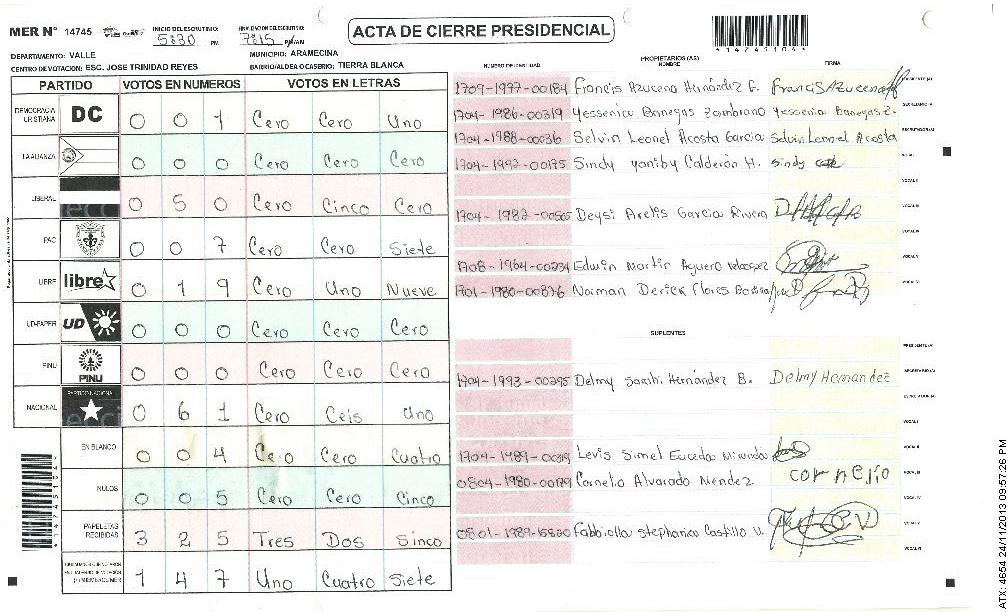 MER N° 14745
INICIO DEL ESCRUTINIO: 5:30 PM
FINALIZACION DEL ESCRUTINIO: 7:15 PM/AM
ACTA DE CIERRE PRESIDENCIAL
DEPARTAMENTO: VALLE
MUNICIPIO: ARAMECINA
CENTRO DE VOTACION: ESC. JOSE TRINIDAD REYES
BARRIO/ALDEA/CASERIO: TIERRA BLANCA
PARTIDO VOTOS EN NUMEROS VOTOS EN LETRAS
DEMOCRACIA CRISTIANA DC 0 0 1 Cero Cero Uno
LA ALIANZA 0 0 0 Cero Cero Cero
LIBERAL 0 5 0 Cero Cinco Cero
PAC 0 0 7 Cero Cero Siete
LIBRE libre 0 1 9 Cero Uno Nueve
UD-FAPER UD 0 0 0 Cero Cero Cero
PINU PINU 0 0 0 Cero Cero Cero
NACIONAL PARTIDO NACIONAL 0 6 1 Cero Ceis Uno
EN BLANCO 0 0 4 Cero Cero Cuatro
NULOS 0 0 5 Cero Cero Cinco
PAPELETAS RECIBIDAS 3 2 5 Tres Dos Sinco
1 4 7 Uno Cuatro Siete
NUMERO DE IDENTIDAD PROPIETARIOS (AS) NOMBRE FIRMA
1709-1997-00184 Francis Azucena Hernández G. Francis Azucena PRESIDENTE (A)
1704-1986-00319 Yessenia Banegas Zambrano Yessenia Banegas Z. SECRETARIO (A)
1704-1988-00036 Selvin Leonel Acosta Garcia Selvin Leonel Acosta ESCRUTADOR (A)
1704-1992-00175 Sindy Yaniby Calderón H. Sindy VOCAL I
VOCAL II
1704-1982-00505 Deysi Arelis Garcia Rivera VOCAL III
VOCAL IV
1708-1964-00234 Edwin Martir Aguero Velasquez VOCAL V
1701-1980-00876 Norman Derick Flores VOCAL VI
SUPLENTES
PRESIDENTE (A)
1704-1993-00295 Delmy Sarahi Hernández B. Delmy Hernandez SECRETARIO (A)
ESCRUTADOR (A)
VOCAL I
1704-1989-00319 Levis Simel Euceda Miranda VOCAL II
0804-1980-00179 Cornelio Alvarado Mendez cornelio VOCAL III
VOCAL IV
0801-1989-15820 Fabbiolla Stephania Castillo V. VOCAL V
VOCAL VI
ATX: 4654 24/11/2013 09:57:26 PM